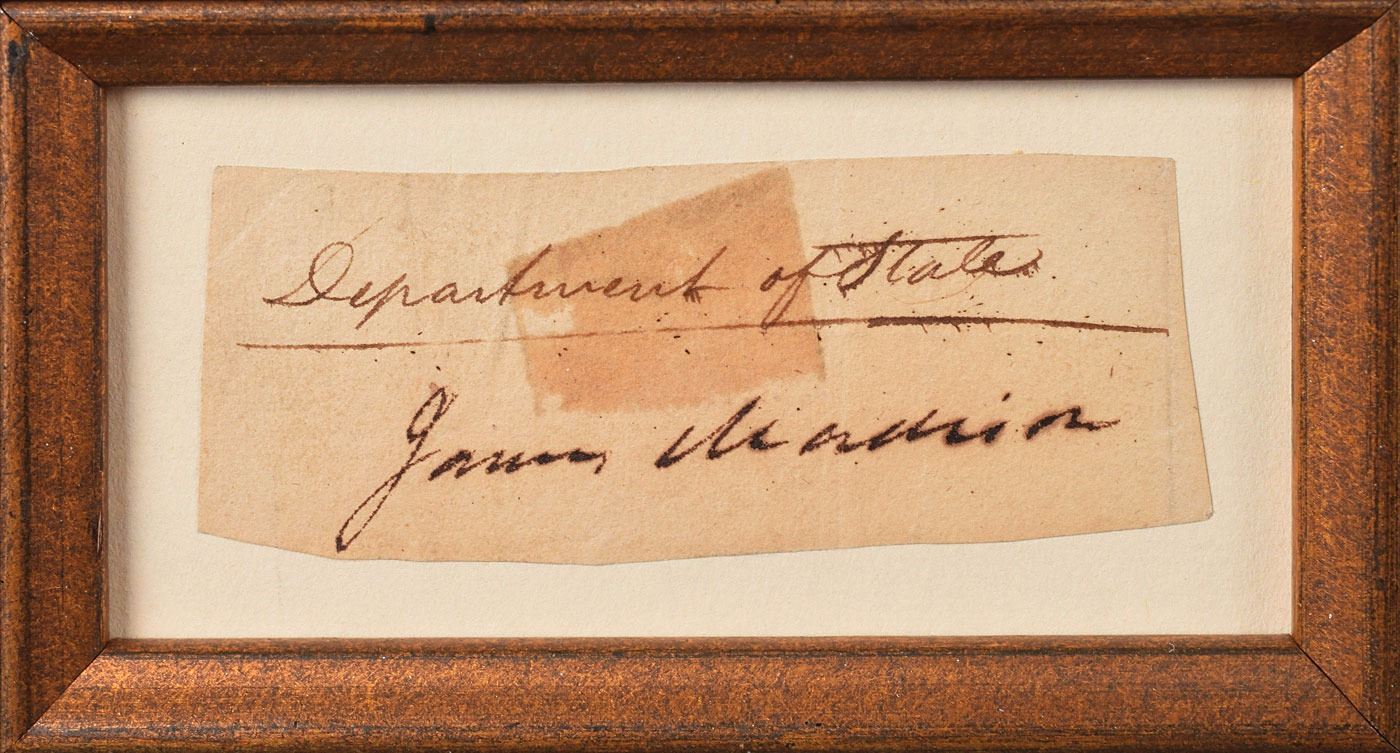 Department of State.
James Madison